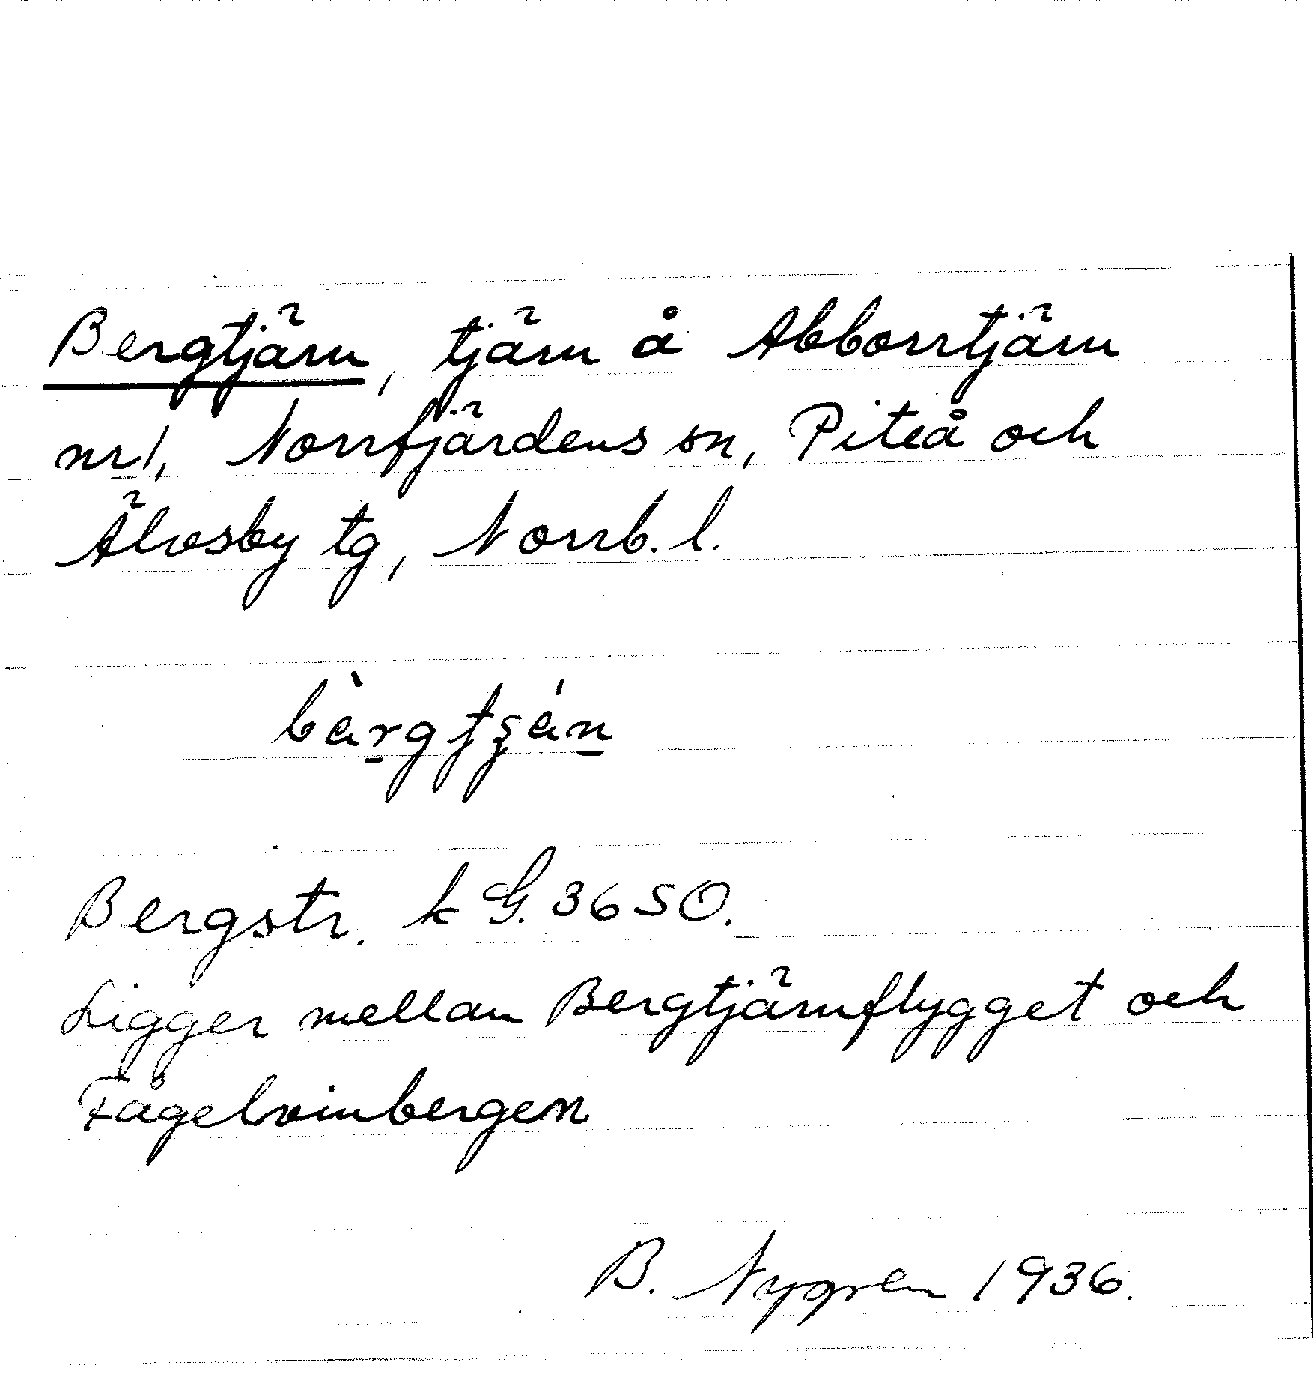 Bergtjärn, tjärn å Abborrtjärn
nr 1, Norrfjärdens sn, Piteå och
Älvsby tg, Norrb. l.
bàrgtʂán
Bergstr. k G. 36 SO.
Ligger mellan Bergtjärnflygget och
Fågelvinbergen
B. Nygren 1936.